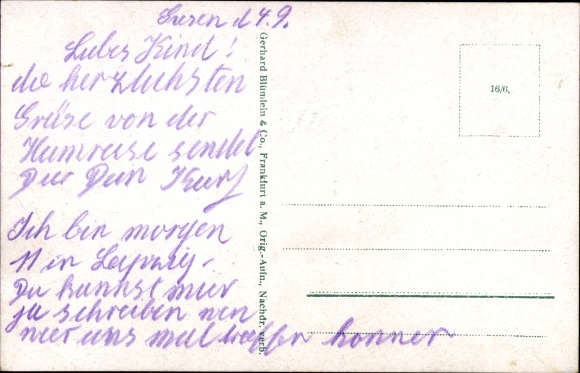 d 4. 9.
Liebes Kind!
die herzlichsten
Grüse von der
Heimreise sendet
Dir Dein Kurt
Ich bin morgen
11 in Leipzig.
Du kannst mir
ja schreiben wen
wier uns mal treffen konner
Gerhard Blümlein & Co., Frankfurt a. M., Orig.-Aufn., Nachdr. verb.
16/6.